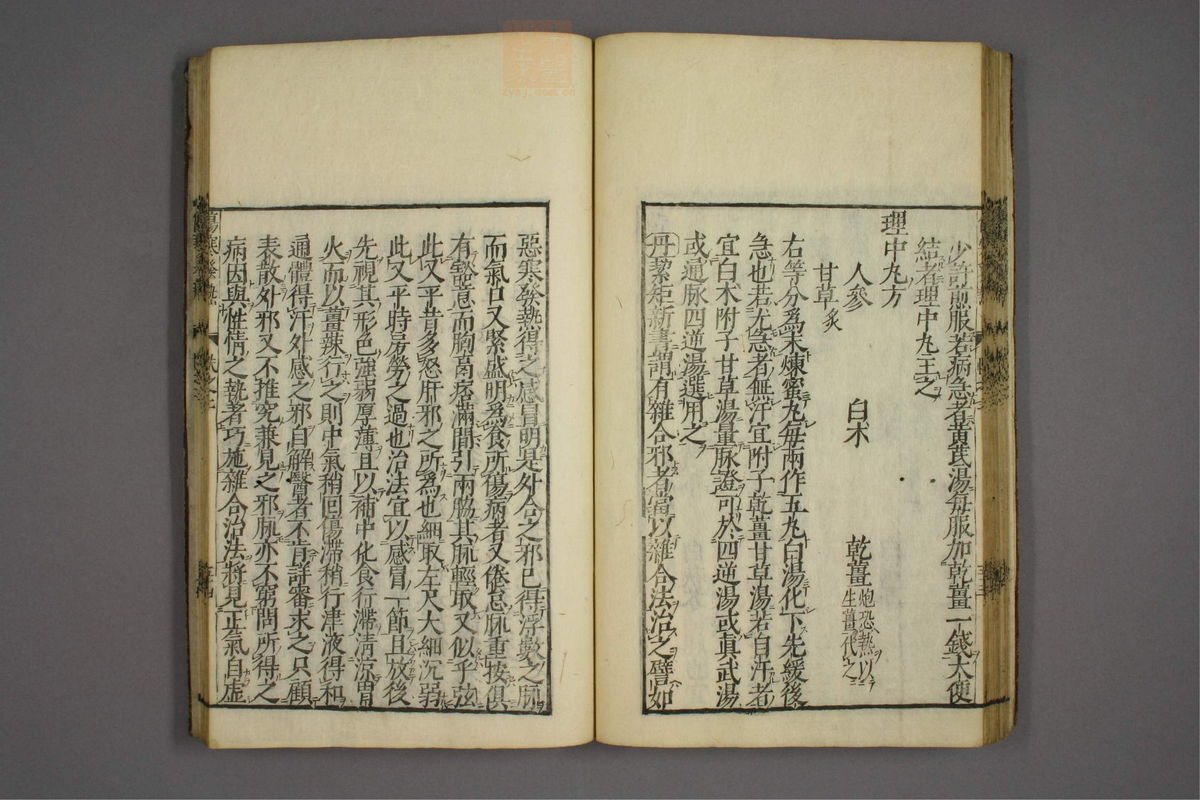 少許煎服若病急者黄芪湯每服加乾薑一錢大便
結者理中丸主之
理中丸方
人參　白朮　乾薑炮恐熱以生薑代之
甘草炙
右等分為末煉蜜丸每兩作五丸白湯化下先緩後
急也若尤急者無汗宜附子乾薑甘草湯若自汗者
宜白朮附子甘草湯量脉證可於四逆湯或眞武湯
或通脉四逆湯選用之
丹絜矩新書謂有雜合邪者當以雜合法治之譬如
惡寒發熱得之感冒明是外合之邪已得浮數之脉
而氣口又緊盛明為食所傷病者又倦怠脉重按俱
有豁意而胸膈痞滿間引兩脇其脉輕取又似乎弦
此又平昔多怒肝邪之所為也細取左尺大細沉弱
此又平時房勞之過也治法宜以感冒一節且放後
先視其形色強弱厚薄且以補中化食行滯清涼胃
火而以薑辣行之則中氣稍回傷滯稍行津液得和
通體得汗外感之邪自解醫者不肯詳審求之只顧
表散外邪又不推究兼見之邪脉亦不窮問所得之
病因與性情之執著巧施雜合治法將見正氣自虛